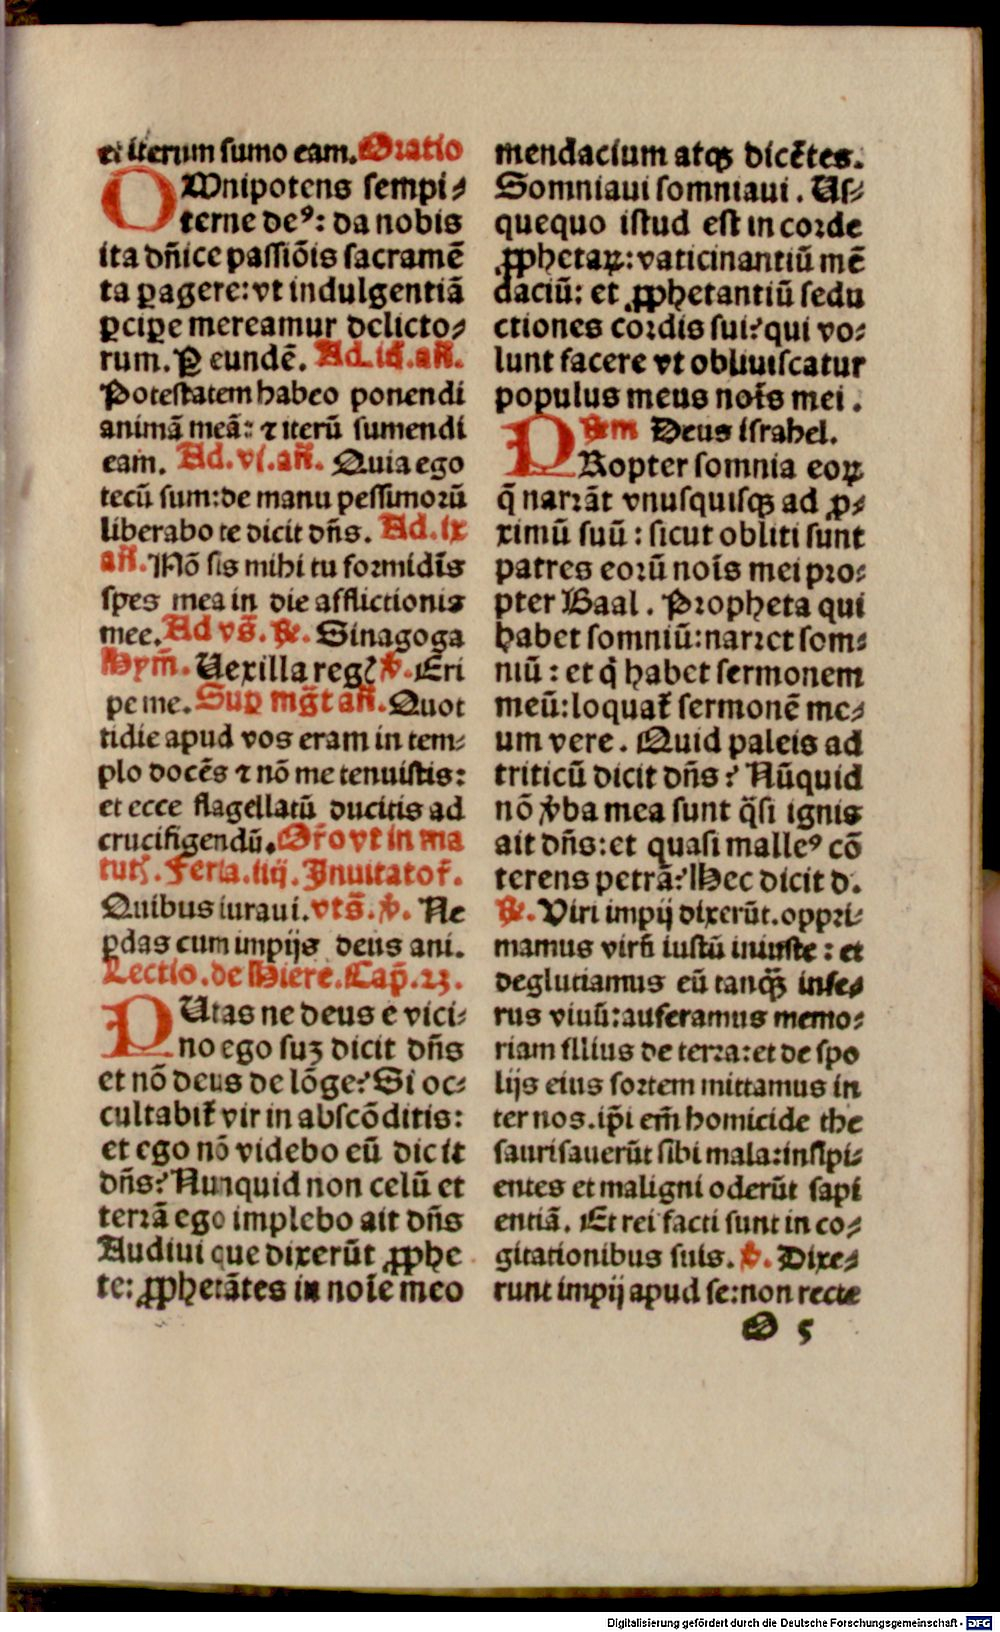 et iterum sumo eam. Oratio
OMnipotens sempi⸗
terne deꝰ: da nobis
ita dñice passiõis sacramẽ
ta ꝑagere: vt indulgentiã
ꝑciꝑe mereamur delicto⸗
rum. Ꝑ eundẽ. Ad .iij. añ.
Potestatem habeo ponendi
animã meã: ⁊ iterũ sumendi
eam. Ad .vi. añ. Quia ego
tecũ sum: de manu pessimorũ
liberabo te dicit dñs. Ad .ix
añ. Nõ sis mihi tu formidĩs
spes mea in die afflictionis
mee. Ad vs̃. ℟. Sinagoga
Hym̃. Uexilla reg℥ ℣. Eri
pe me. Suꝑ mg̃t añ. Quot
tidie apud vos eram in tem⸗
plo docẽs ⁊ nõ me tenuistis:
et ecce flagellatũ ducitis ad
crucifigendũ. Or̃o vt in ma
tuth̃. Feria .iiij. Inuitator̃.
Quibus iuraui. vts̃. ℣. Ne
ꝑdas cum impijs deus ani.
Lectio. de Hiere. Cap̃. 23.
PUtas ne deus e vici⸗
no ego suꝫ dicit dñs
et nõ deus de lõge? Si oc⸗
cultabit̃ vir in abscõditis:
et ego nõ videbo eũ dicit
dñs? Nunquid non celũ et
terrã ego implebo ait dñs
Audiui que dixerũt ꝓphe
te: ꝓphetãtes in noĩe meo
mendacium atqꝫ dicẽtes.
Somniaui somniaui. Us⸗
quequo istud est in corde
ꝓphetaꝝ: vaticinantiũ mẽ
daciũ: et ꝓphetantiũ sedu
ctiones cordis sui? qui vo⸗
lunt facere vt obliuiscatur
populus meus noĩs mei.
℟m Deus israhel.
PRopter somnia eoꝝ
q̃ narrãt vnusquisqꝫ ad ꝓ⸗
ximũ suũ: sicut obliti sunt
patres eorũ noĩs mei pro⸗
pter Baal. Propheta qui
habet somniũ: narret som⸗
niũ: et q̃ habet sermonem
meũ: loquat̃ sermonẽ me⸗
um vere. Quid paleis ad
triticũ dicit dñs? Nũquid
nõ v̾ba mea sunt q̃si ignis
ait dñs: et quasi malleꝰ cõ
terens petrã? Hec dicit d.
℟. Viri impij dixerũt. oppri⸗
mamus virũ iustũ iniuste: et
deglutiamus eũ tanqꝫ infe⸗
rus viuũ: auferamus memo⸗
riam illius de terra: et de spo
lijs eius sortem mittamus in
ter nos. ip̃i em̃ homicide the
saurisauerũt sibi mala: insipi⸗
entes et maligni oderũt sapi
entiã. Et rei facti sunt in co⸗
gitationibus suis. ℣. Dixe⸗
runt impij apud se: non recte
O 5
Digitalisierung gefördert durch die Deutsche Forschungsgemeinschaft - DFG